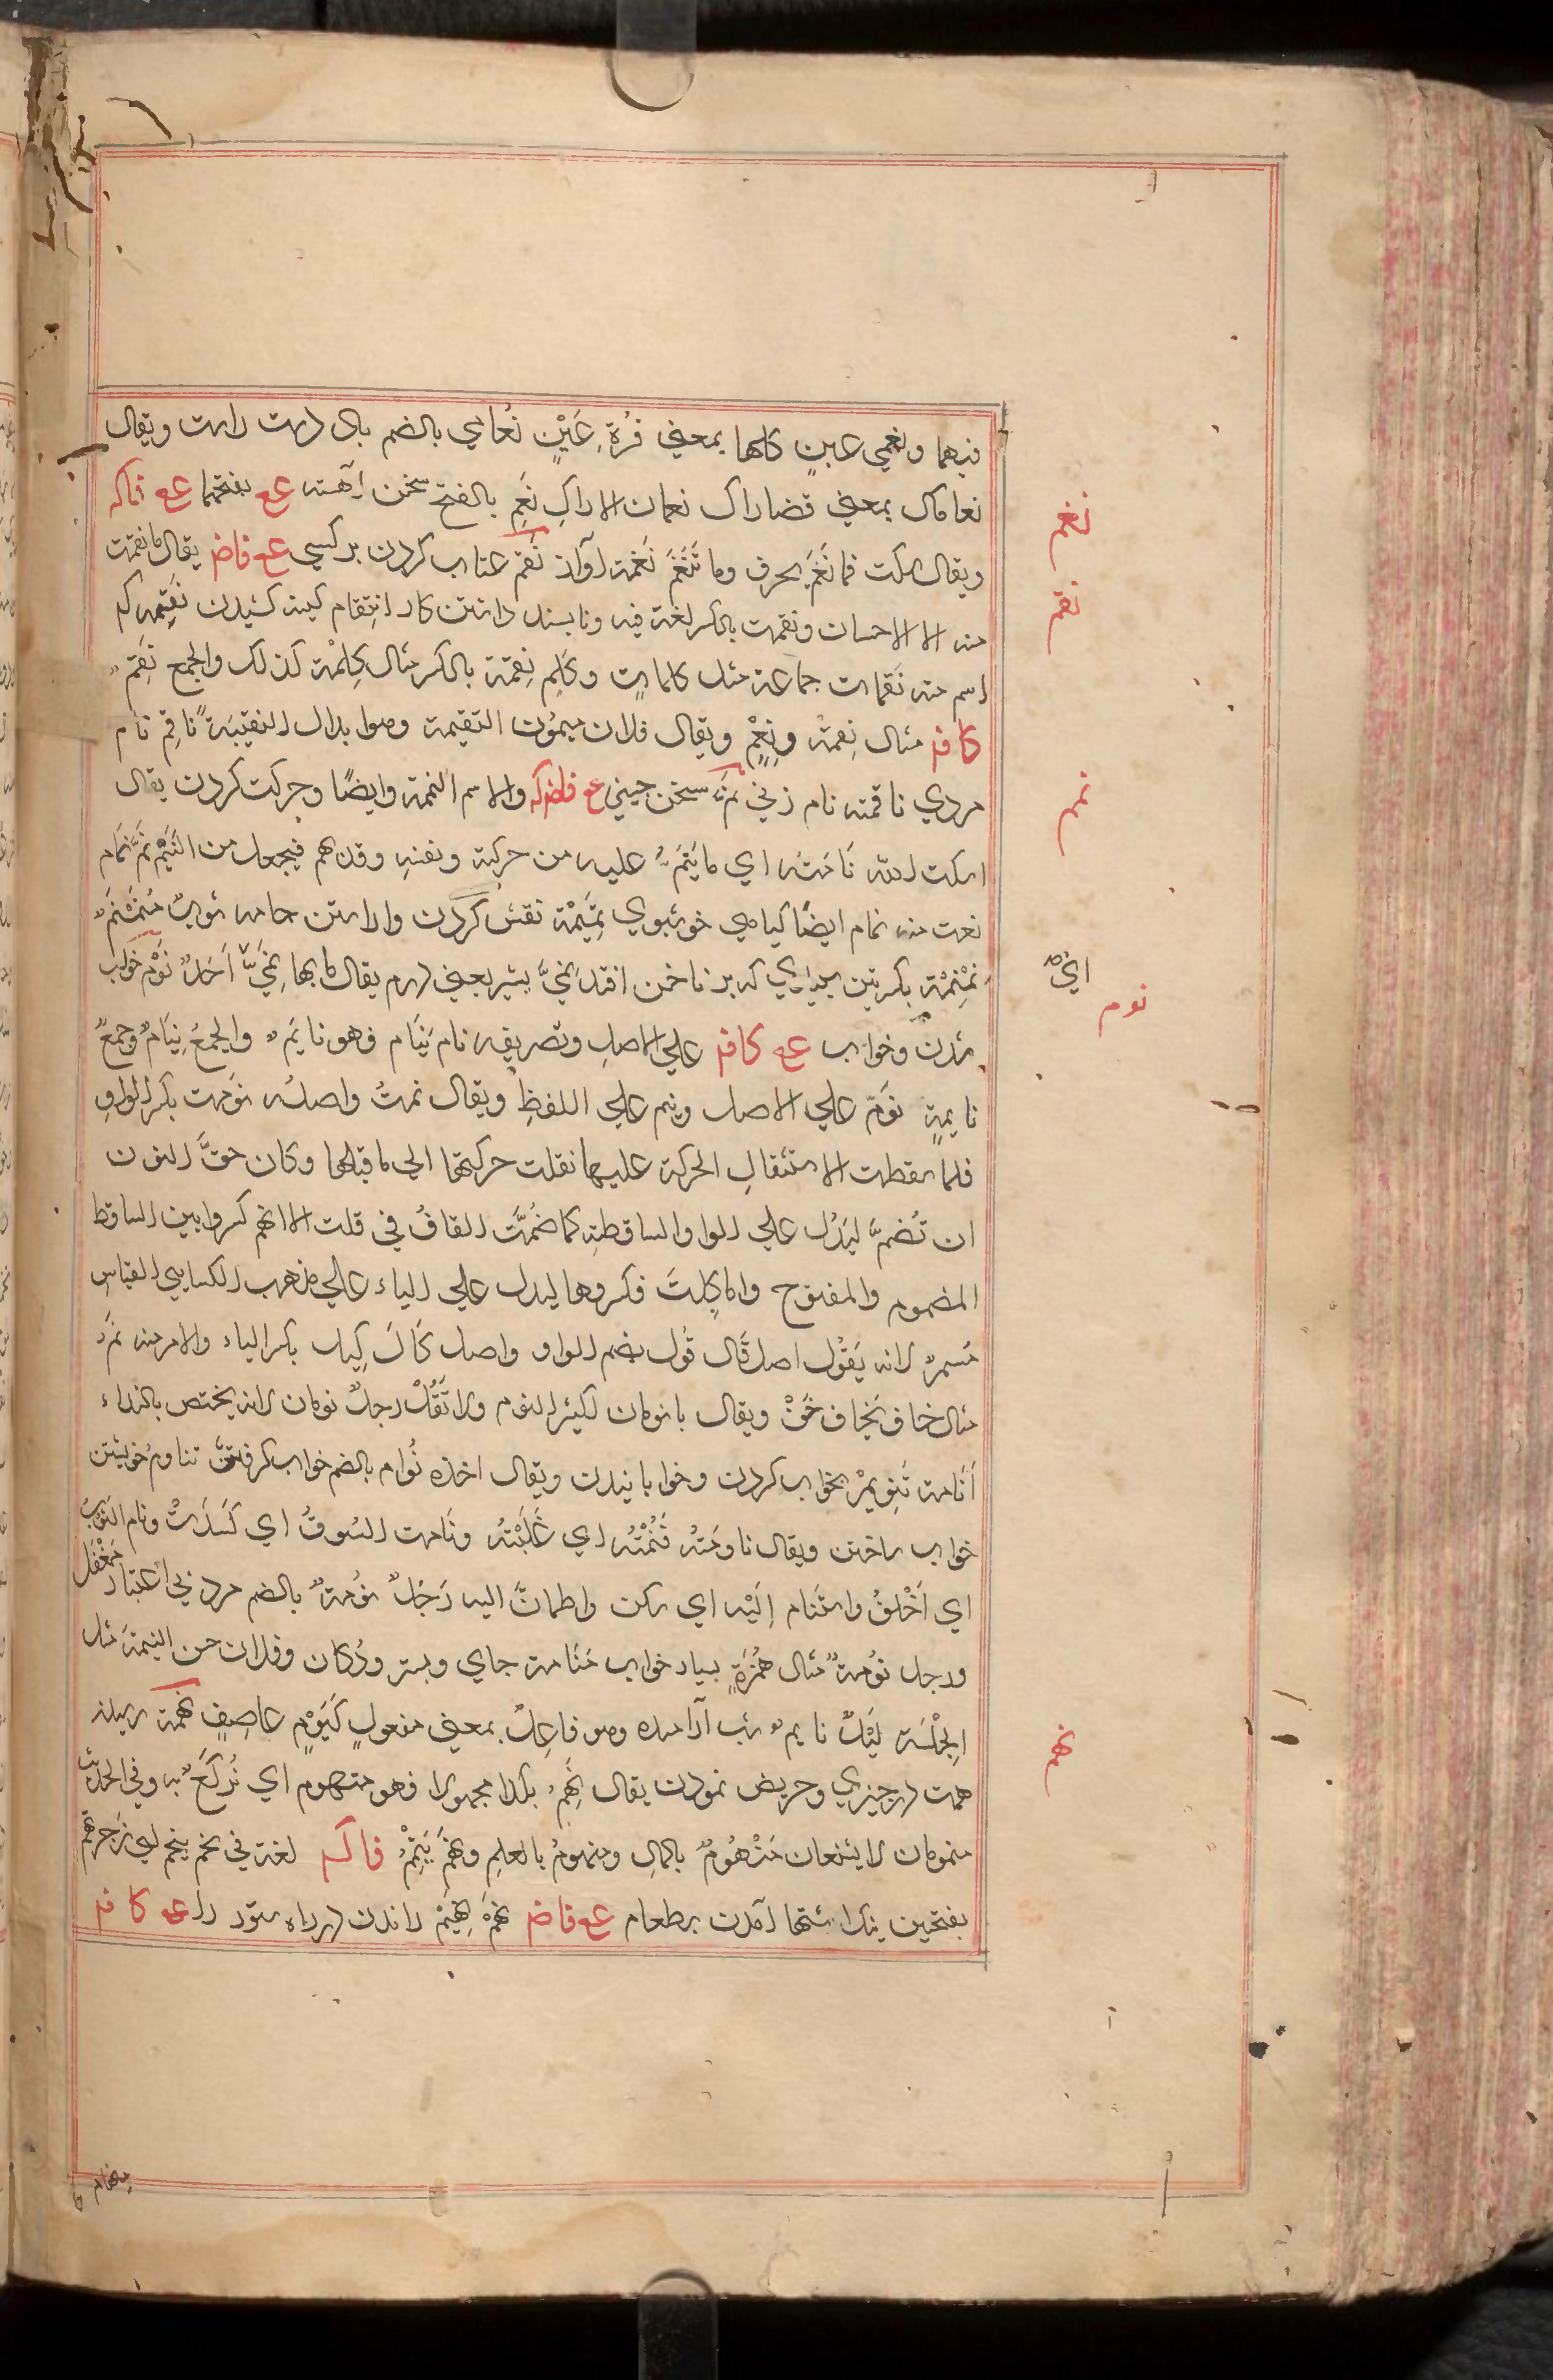 فيهما ونعمي عين كلها بمعني قُرة عَيْنٍ نُعَامي بالضم باد دست راست ويقال
نعاماك بمعني قصاراك نعمان الاراكِ نَغَم بالفتح سخن آهسته عع بفتحها عع فاكه
ويقال سكت فما نَغَمَ بحرف وما تَنَغَّمَ نَغمة آواز نَقم عتاب كردن بر كسي عع فاض يقال ما نقمت
منه الا الاحسان ونقمت بالكسر لغة فيه ونا پسند داشتن كار انتِقام كينه كشيدن نَقِمه كم
اسم منه نَقمات جماعة مثل كلمات وكلم نِقمة بالكسر مثال كِلمة كذلك والجمع نِقَم
كافه مثال نِعمة ونِعَم ويقال فلان ميمُون النقيمة وهوا بدال النقيبَة ناقِم نام
مردي ناقمه نام زني نَمّ سخن چيني عع فاضكه والاسم النمة وايضًا وحركت كردن يقال
اسكت الله نَامّتَه اي ما يَنِمّ عليه من حركته ونفسه وقد يهمز فيجعل من النَئِيْم نَمَّ نمام
نعت منه نمام ايضًا كياهي خوشبوي نِمْنِمَة نقش كردن واراستن جامه ثوبٌ مُنَمْنَم
نِمْنِمة بكسرتين سپيدي كه بر ناخن افتد نُمِّيّ پشيز يعني درم يقال ما بها نُمِّيّ اَحَدٌ نَوْم خواب
شدن وخواب عع كافه علي الاصل وتصريفه نام يَنَام فهو نايم والجمعُ نِيَامٌ وجمعُ
نايمةٍ نوَّم علي الاصل ونيم علي اللفظِ ويقال نمتُ واصلُه نوِمت بكسر الواوِ
فلما سقطت الاستثقالِ الحركة عليها نقلت حركتها الي ما قبلها وكان حقَّ النون
ان تُضمَّ ليَدُل علي الواو الساقطةِ كما ضُمَّت القافُ في قلت الا انهم كسروا بين الساقط
المضموم والمفتوح واما كِلتَ فكسروها ليدل علي الياء علي مذهب الكسايي القياس
مُستمرٌ لانه يَقُول اصل قَال قُول بضم الواو واصل كَالَ كِيل بكسر الياء والامر منه نَمْ
مثال خاف يَخاف خَفْ ويقال يا نومان لكثير النوم ولا تَقُلْ رجلٌ نومان لانه يختص بالنداء
اَنَامة تَنِويْم بخواب كردن وخوابانيدن ويقال اخذه نُوام بالضم خواب كرفتش تناوم خويشتن
خواب ساختن ويقال ناوَمتُه فَنُمْتُه اي غَلَبْتُه ونَامت السُوقُ اي كَسَدَتْ ونام الثوبُ
اي اَخْلقَ واستَنام اِلَيْه اي سكن واطمانَّ اليه رَجُلٌ نوُمةٌ بالضم مرد بي اعتبار مُغْفَل
ورجل نوُمةٌ مثال هُمَزَةٍ بسيار خواب مَنامة جاي وبستر ودُكان وفلان حسن النيمة مثل
الجِلْسَة لَيْلٌ نايم شب آراميده وهو فاعِلٌ بمعني مفعولٍ كَيَوْمٍ عاصِفٍ نَهمة رسيدن
همت در چيزي وحريص نمودن يقال نُهِم بكذا مجهولا فهو منهوم اي مُولَعٌ به وفي الحديث
منهومان لا يشبعان مَنْهُومٌ بالمالِ ومنهومٌ بالعلمِ ونَهَمَ يَنْهِمُ فاكه لغة في نحم ينحم اي زَجر نَهَم
بفتحتين نيك اشتها آمدن بر طعام عع فاض نَهْمٌ نَهِيْمٌ راندن در راه ستور را عع كافه
نغم
نقم
نمم
اني
نوم
نهم